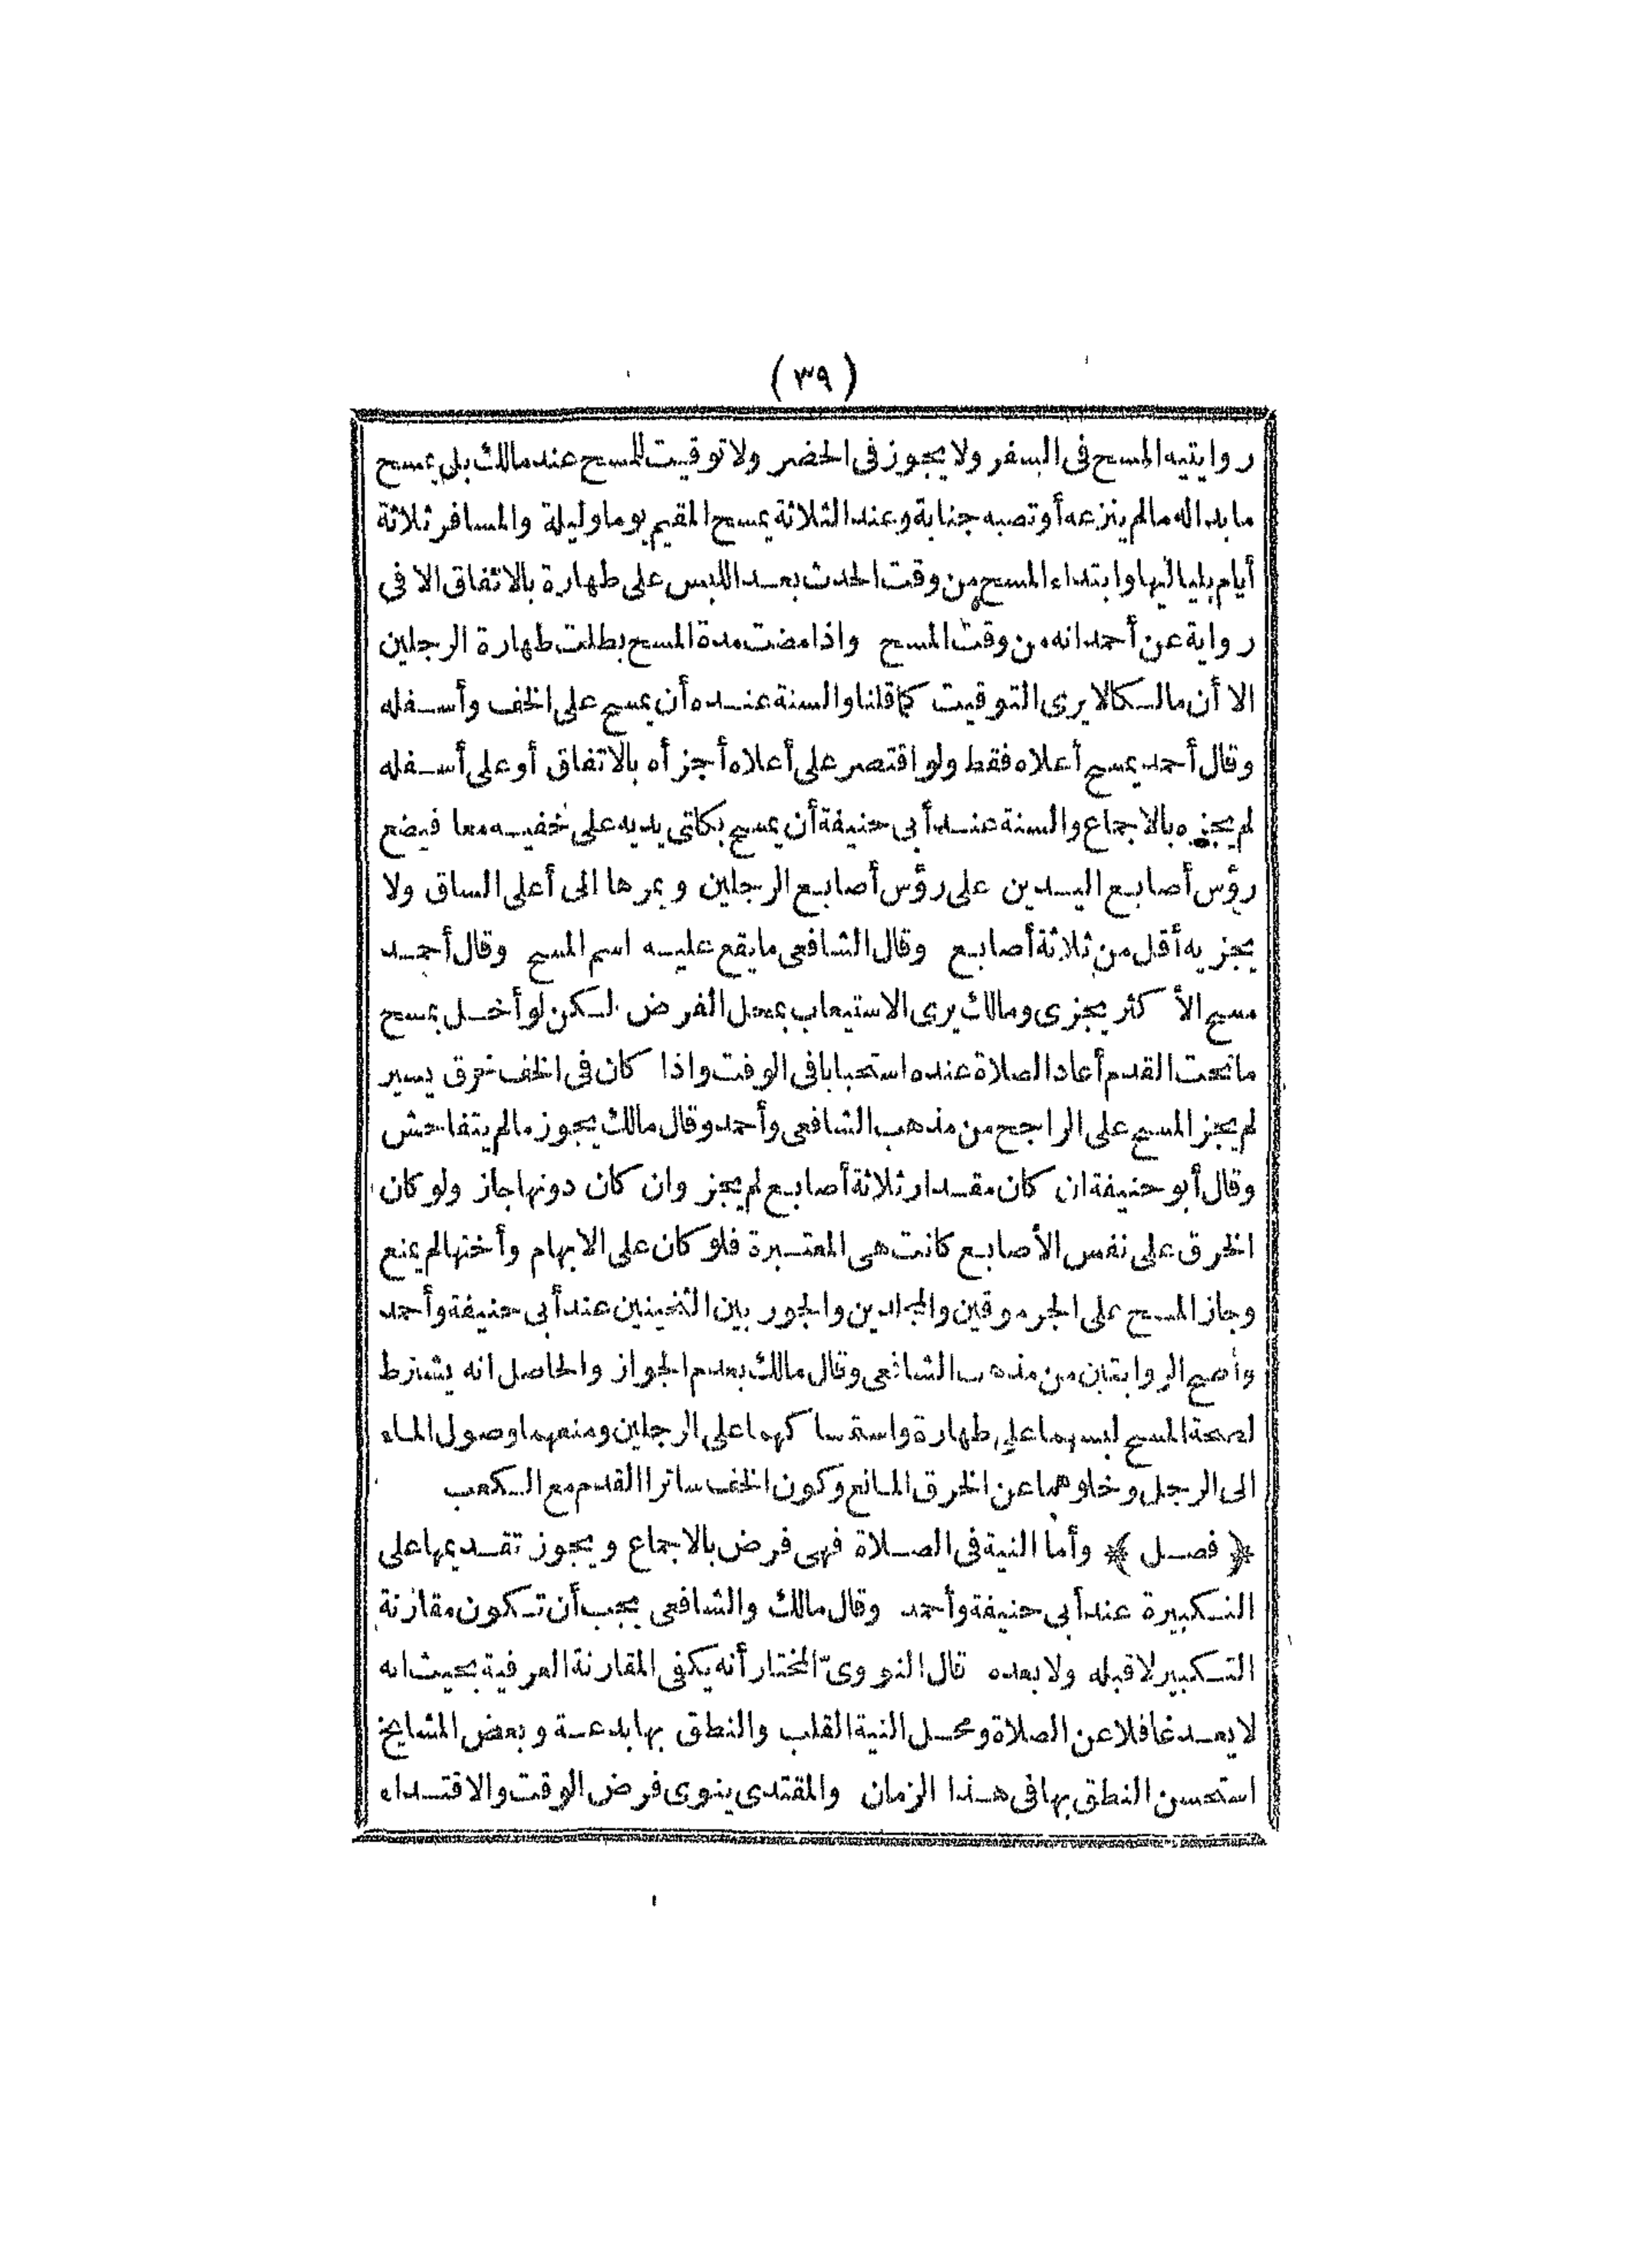 (٣٩)
روايتيه المسح فى السفر ولا يجوز فى الحضر ولا توقيت للمسح عند مالك بل يمسح
ما بدا له ما لم ينزعه أو تصبه جنابة وعند الثلاثة يمسح المقيم يوما وليلة والمسافر ثلاثة
أيام بلياليها وابتداء المسح من وقت الحدث بعد اللبس على طهارة بالاتفاق الا فى
رواية عن أحمد انه من وقت المسح واذا مضت مدة المسح بطلت طهارة الرجلين
الا أن مالكا لا يرى التوقيت كما قلنا والسنة عنده أن يمسح على الخف وأسفله
وقال أحمد يمسح أعلاه فقط ولو اقتصر على أعلاه أجزأه بالاتفاق أو على أسفله
لم يجزه بالاجماع والسنة عند أبى حنيفة أن يمسح بكلتى يديه على خفيه معا فيضع
رؤس أصابع اليدين على رؤس أصابع الرجلين ويمرها الى أعلى الساق ولا
يجزيه أقل من ثلاثة أصابع وقال الشافعى ما يقع عليه اسم المسح وقال أحمد
مسح الأكثر يجزى ومالك يرى الاستيعاب بمحل الفرض لكن لو أخل بمسح
ما تحت القدم أعاد الصلاة عنده استحبابا فى الوقت واذا كان فى الخف خرق يسير
لم يجز المسح على الراجح من مذهب الشافعى وأحمد وقال مالك يجوز ما لم يتفاحش
وقال أبو حنيفة ان كان مقدار ثلاثة أصابع لم يجز وان كان دونها جاز ولو كان
الخرق على نفس الأصابع كانت هى المعتبرة فلو كان على الابهام وأختها لم يمنع
وجاز المسح على الجرموقين والمجلدين والجوربين الثخينين عند أبى حنيفة وأحمد
وأصح الروايتين من مذهب الشافعى وقال مالك بعدم الجواز والحاصل انه يشترط
لصحة المسح لبسهما على طهارة واستمساكهما على الرجلين ومنعهما وصول الماء
الى الرجل وخلوهما عن الخرق المانع وكون الخف ساترا القدم مع الكعب
﴿فصل﴾ وأما النية فى الصلاة فهى فرض بالاجماع ويجوز تقديمها على
التكبيرة عند أبى حنيفة وأحمد وقال مالك والشافعى يجب أن تكون مقارنة
التكبير لا قبله ولا بعده قال النووىّ المختار أنه يكفى المقارنة العرفية بحيث انه
لا يعد غافلا عن الصلاة ومحل النية القلب والنطق بها بدعة وبعض المشايخ
استحسن النطق بها فى هذا الزمان والمقتدى ينوى فرض الوقت والاقتداء